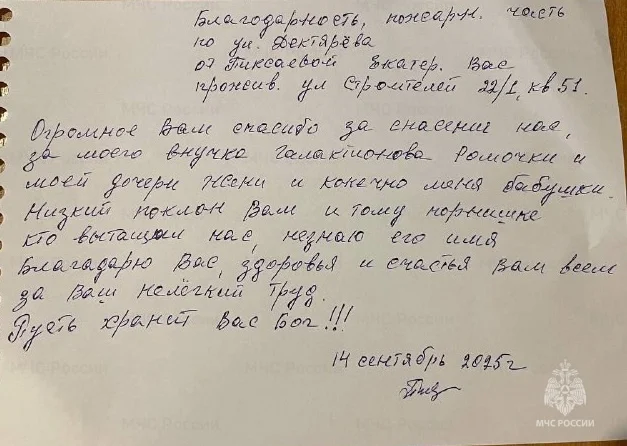 Благодарность, пожарн. часть
по ул. Дектярёва
от Тиксаевой Екатер. Вас
прожив. ул Строителей 22/1, кв 51.
Огромное Вам спасибо за спасение нас,
за моего внучка Галактионова Ромочки и
моей дочери Жени и конечно меня бабушки.
Низкий поклон Вам и тому
кто вытащил нас, незнаю его имя
Благадарю Вас, здоровья и счастья Вам всем
за Ваш нелёгкий труд.
Пусть хранит Вас Бог!!!
14 сентябрь 2025г
МЧС РОССИИ